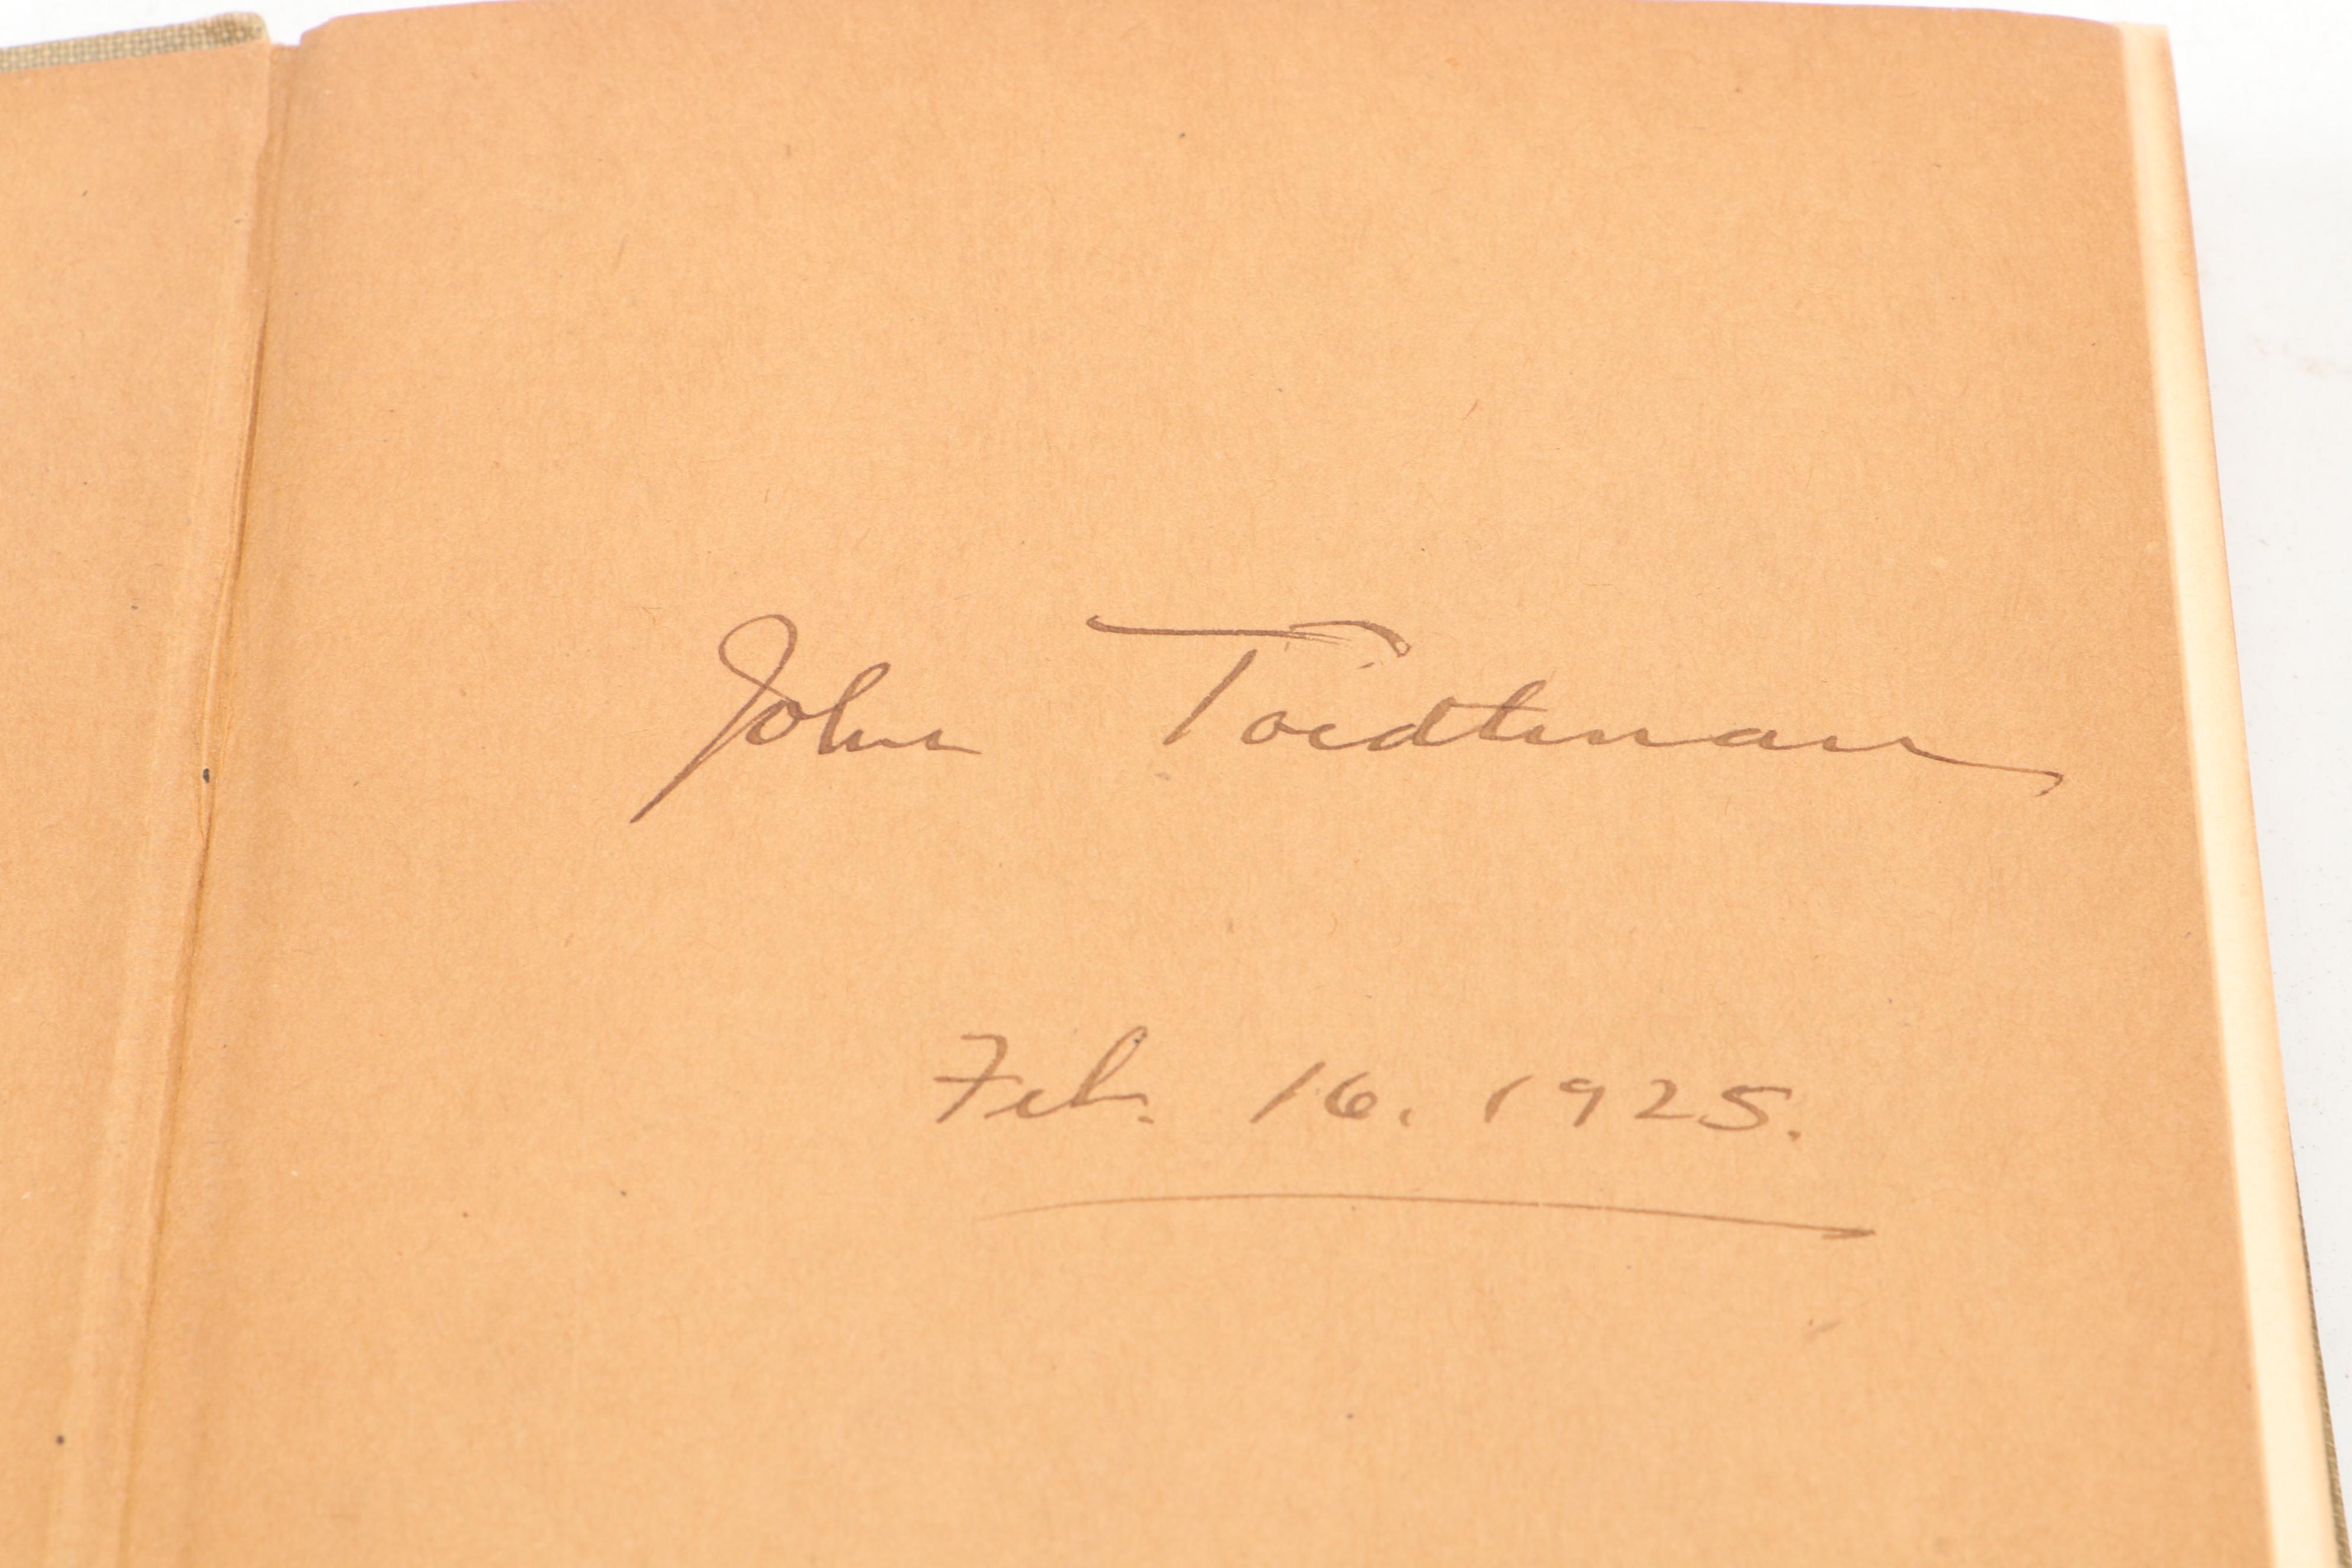 John Toedtman
Feb. 16. 1925.